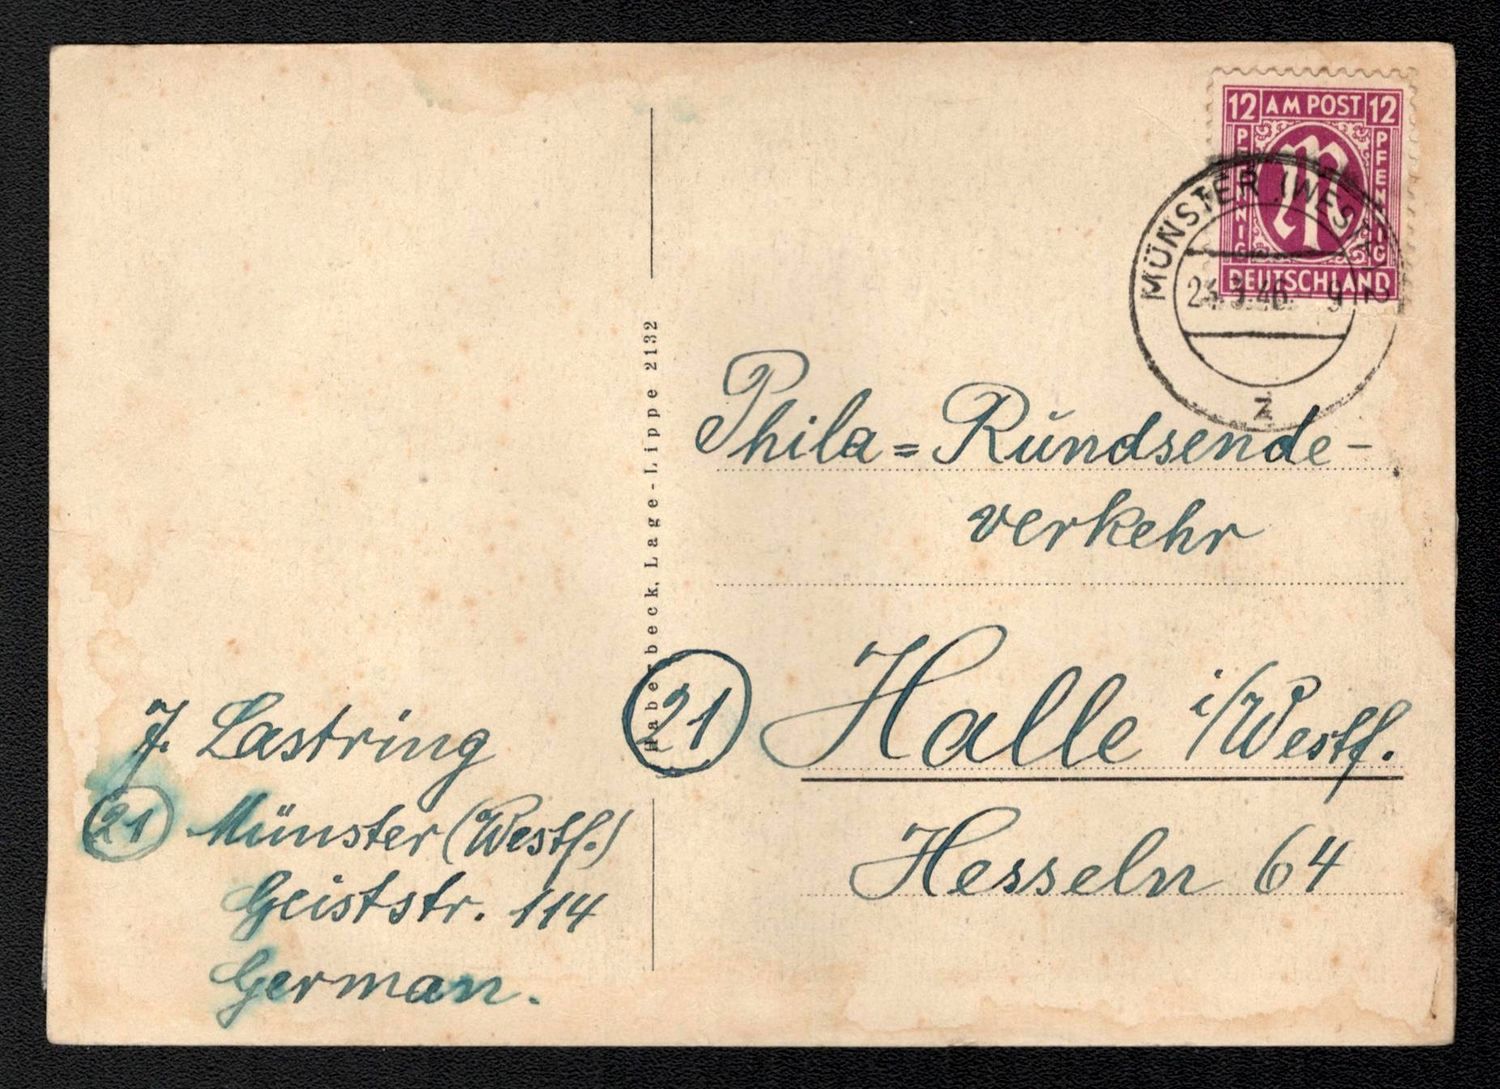 12 AM POST 12
PFENNIG
PFENNIG
DEUTSCHLAND
MÜNSTER (WESTF) 2
23.3.46. 9
z
Phila = Rundsende-
verkehr
(21) Halle i/Westf.
Hesseln 64
Haberbeck, Lage-Lippe 2132
J. Lastring
(21) Münster (Westf.)
Geiststr. 114
German.